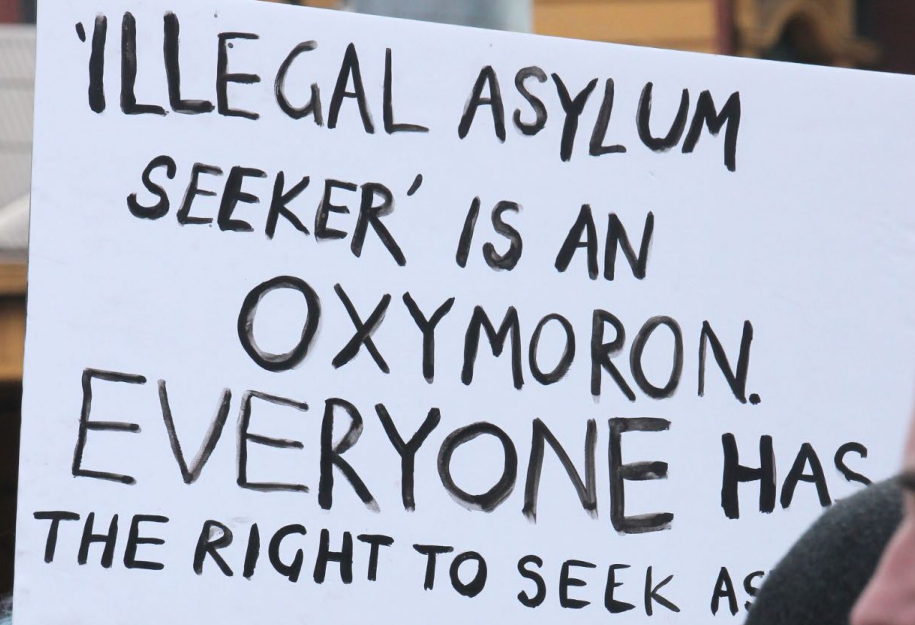 'ILLEGAL ASYLUM
SEEKER' IS AN
OXYMORON.
EVERYONE HAS
THE RIGHT TO SEEK